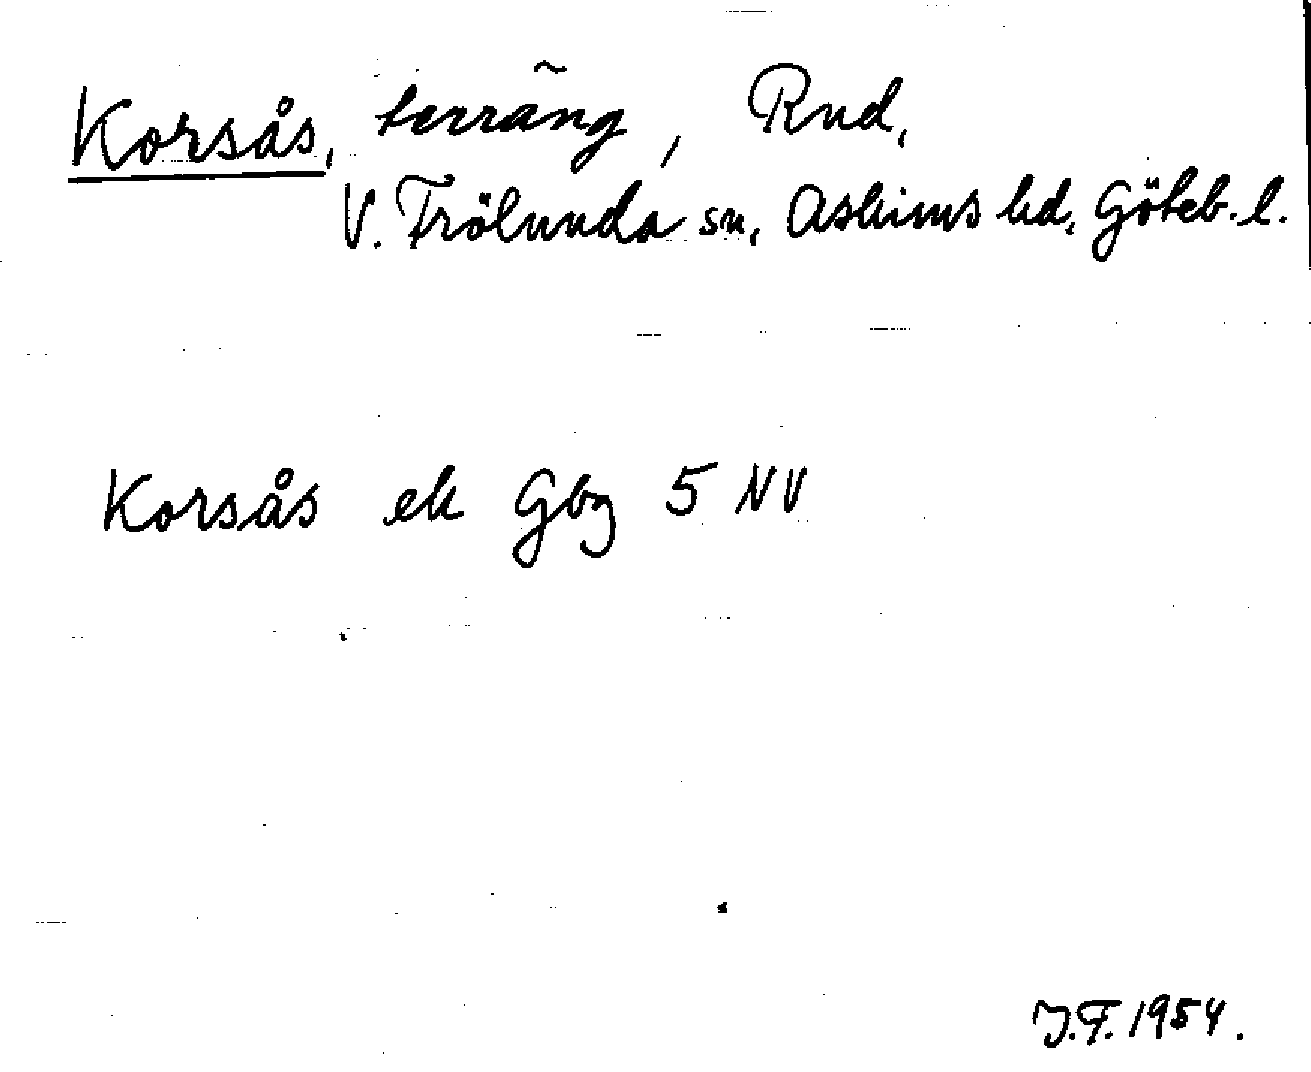 Korsås, terräng, Rud,
V. Frölunda sn, Askims hd, Göteb. l.
Korsås ek Gbg 5 NV
J.F. 1954.